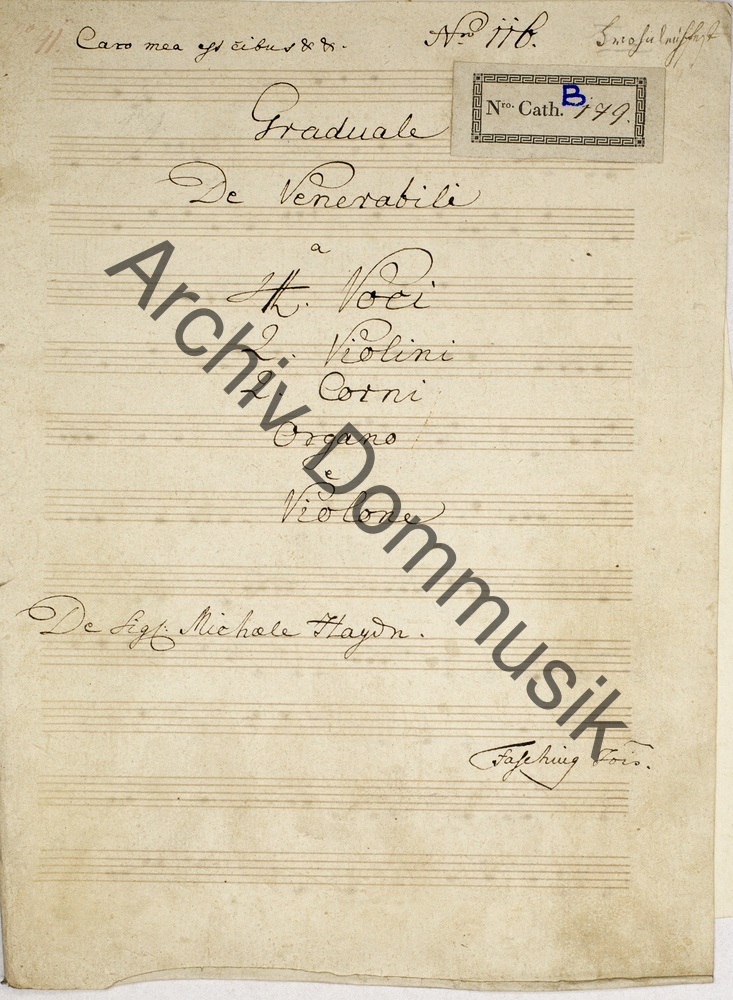 Caro mea est cibus & &.
Nro 116.
Frohnleichfest
Nro. Cath. B 149.
Graduale
De Venerabili
a
4. Voci
2. Violini
2 Corni
Organo
e
Violone
De Sigl: Michæle Haydn.
Fasching
Archiv Dommusik